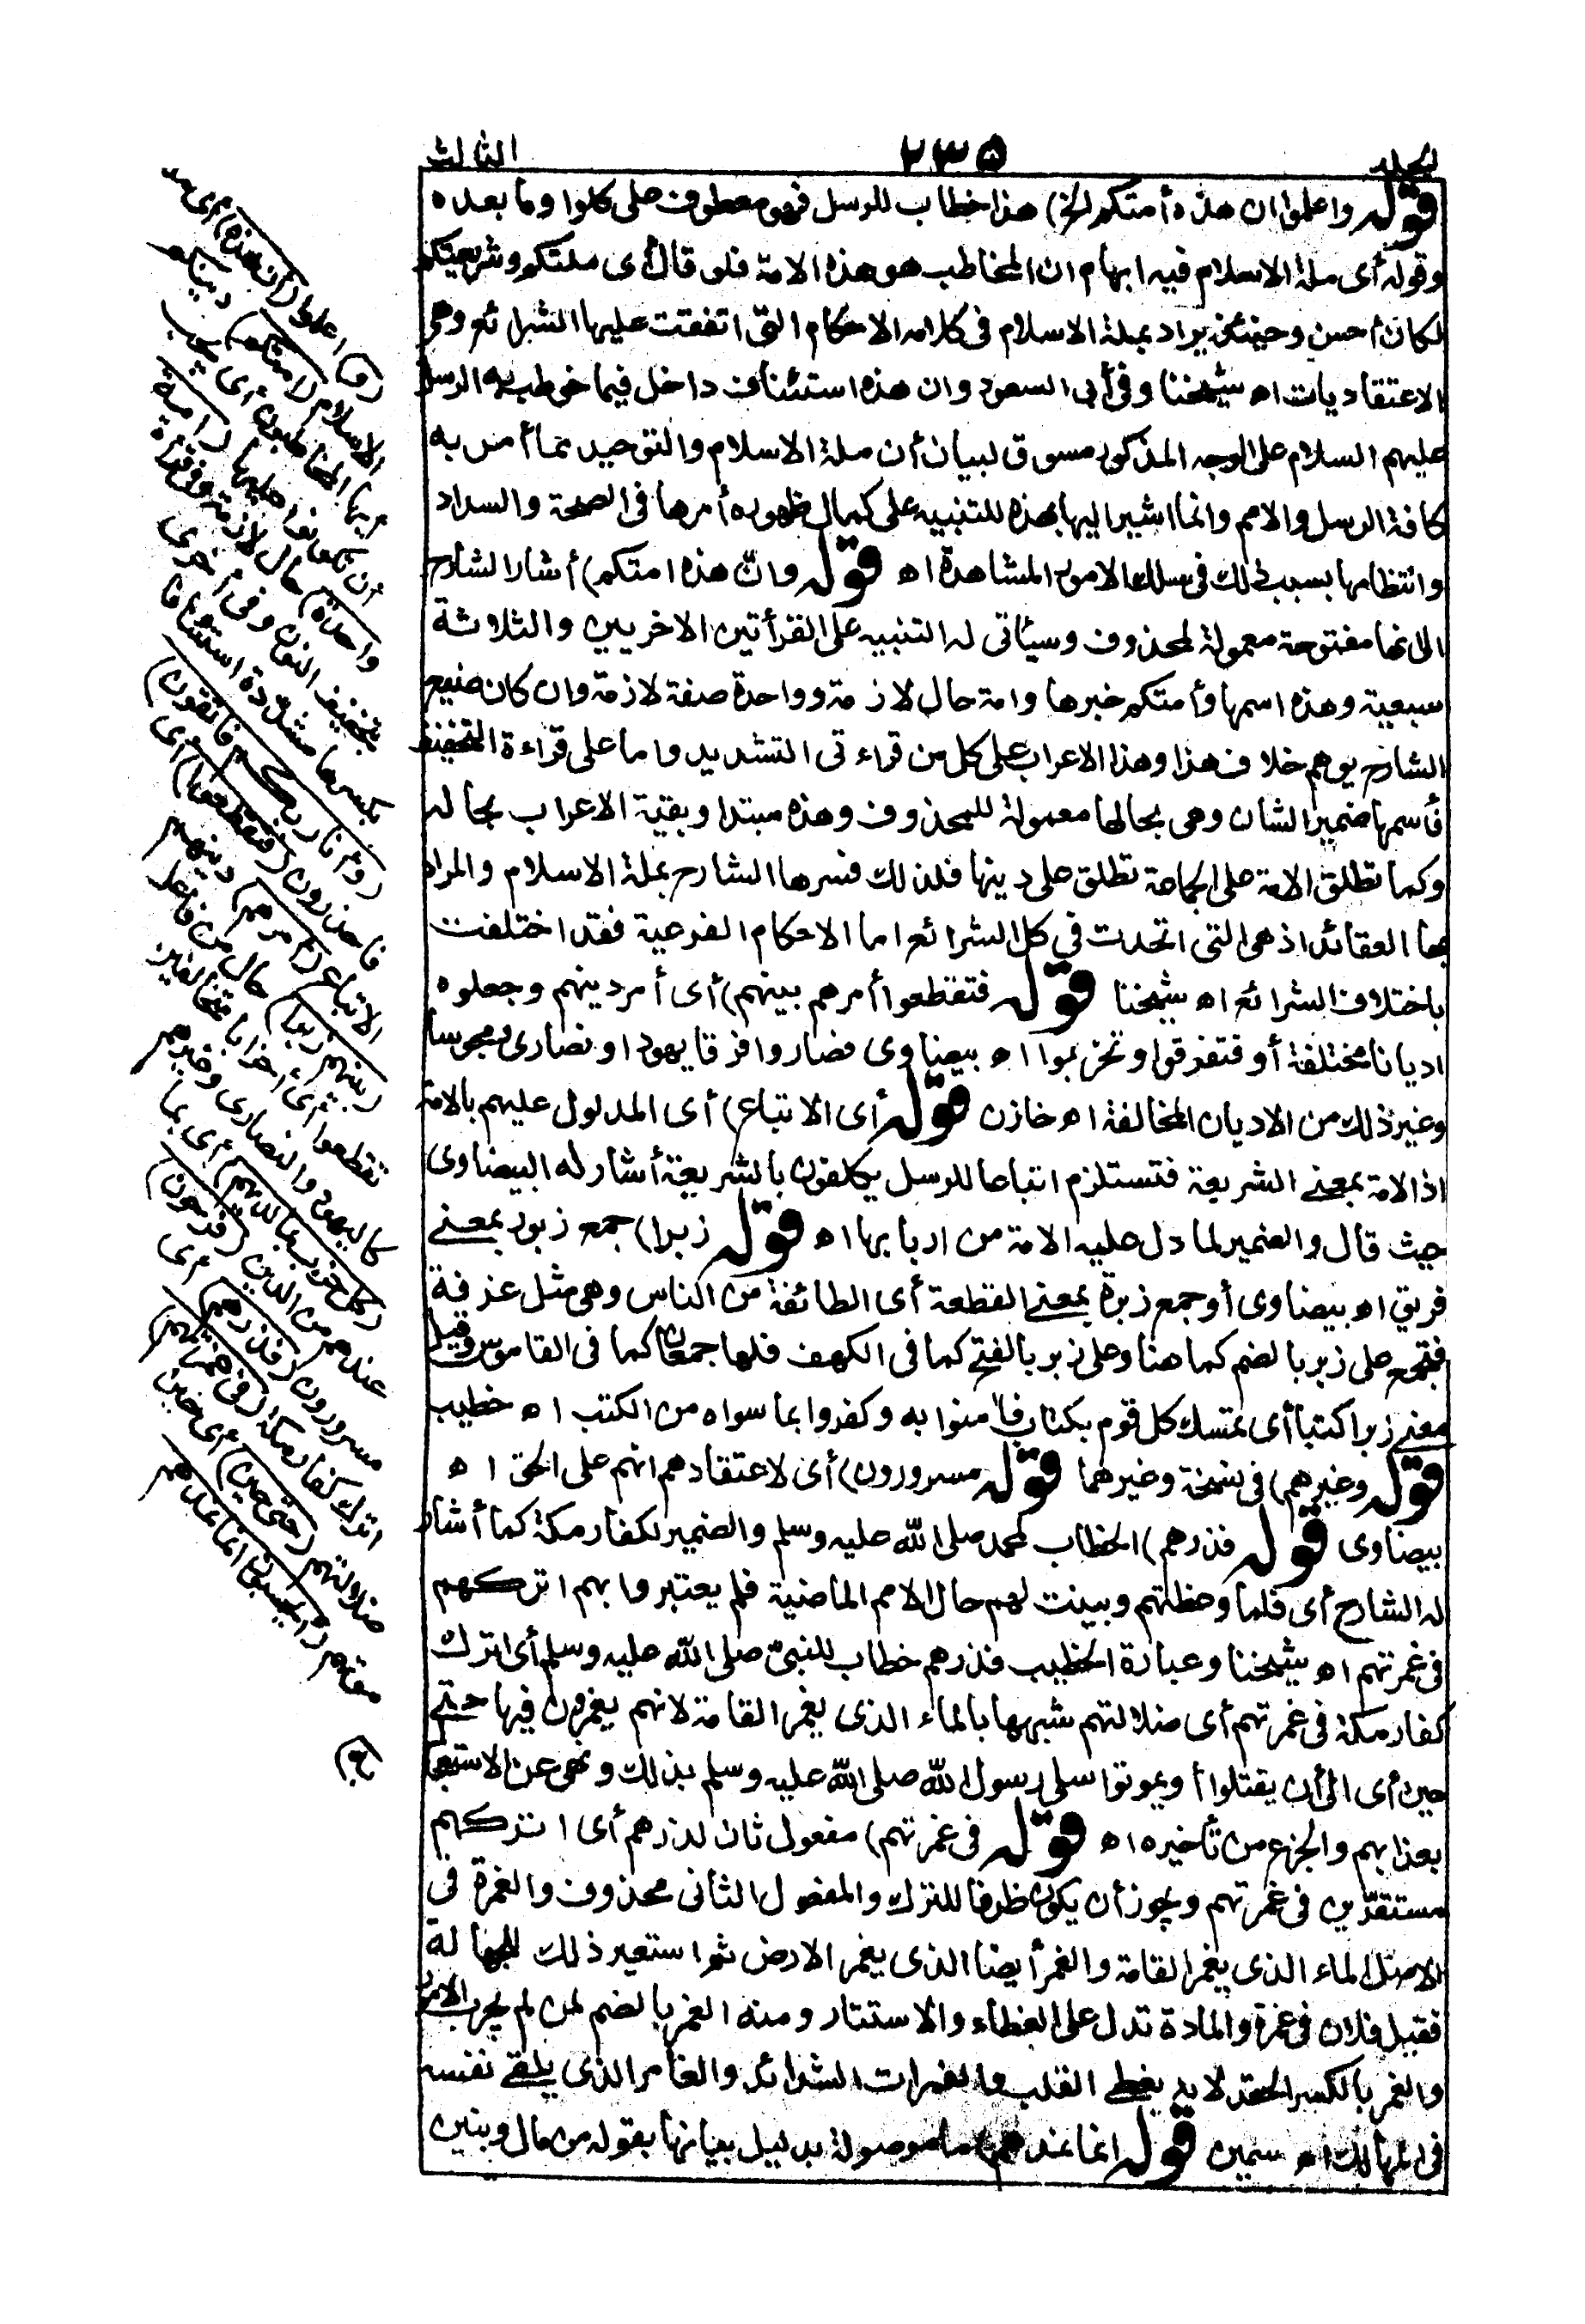 المجلد ٢٣٥ الثالث
قوله واعلموا ان هذه أمتكم الخ) هذا خطاب للرسل فهو معطوف على كلوا وما بعده
وقوله أى ملة الاسلام فيه ابهام ان المخاطب هو هذه الامة فلو قال أى ملتكم وشريعتكم
لكان أحسن وحينئذ يراد بملة الاسلام فى كلامه الاحكام التى اتفقت عليها الشرائع وهى
الاعتقاديات اه شيخنا وفى أبى السعود وان هذه استئناف داخل فيما خوطب به الرسل
عليهم السلام على الوجه المذكور مسوق لبيان أن ملة الاسلام والتوحيد مما أمر به
كافة الرسل والامم وانما اشير اليها بهذه للتنبيه على كمال ظهوره أمرها فى الصحة والسداد
وانتظامها بسبب ذلك فى سلك الامور المشاهدة اه قوله وانّ هذه امتكم) أشار الشارح
الى انها مفتوحة معمولة لمحذوف وسيأتى له التنبيه على القرأتين الاخريين والثلاثة
سبعية وهذه اسمها وأمتكم خبرها وامة حال لازمة وواحدة صفة لازمة وان كان صنيع
الشارح يوهم خلاف هذا وهذا الاعراب على كل من قراءتى التشديد واما على قراءة التخفيف
فأسمها ضمير الشان وهى بحالها معمولة للمحذوف وهذه مبتدا وبقية الاعراب بحاله
وكما تطلق الامة على الجماعة تطلق على دينها فلذلك فسرها الشارح بملة الاسلام والمراد
بها العقائد اذ هى التى اتحدت فى كل الشرائع اما الاحكام الفرعية فقد اختلفت
باختلاف الشرائع اه شيخنا قوله فتقطعوا أمرهم بينهم) أى أمر دينهم وجعلوه
اديانا مختلفة أو فتفرقوا وتحزبوا اه بيضاوى فصاروا فرقا يهودا ونصارى ومجوسا
وغير ذلك من الاديان المخالفة اه خازن قوله أى الاتباع) أى المدلول عليهم بالامة
اذ الامة بمعنى الشريعة فتستلزم اتباعا للرسل يكلفون بالشريعة أشار له البيضاوى
حيث قال والضمير لما دل عليه الامة من اربابها اه قوله زبرا) جمع زبور بمعنى
فريق اه بيضاوى أو جمع زبرة بمعنى القطعة أى الطائفة من الناس وهى مثل غرفة
فتجمع على زبر بالضم كما هنا وعلى زبر بالفتح كما فى الكهف فلها جمعان كما فى القاموس وقيل
معنى زبرا كتبا أى تمسك كل قوم بكتاب فآمنوا به وكفروا بما سواه من الكتب اه خطيب
قوله وغيرهم) فى نسخة وغيرهما قوله مسرورون) أى لاعتقادهم انهم على الحق اه
بيضاوى قوله فذرهم) الخطاب لمحمد صلى الله عليه وسلم والضمير لكفار مكة كما أشار
له الشارح أى فلما وعظتهم وبينت لهم حال الامم الماضية فلم يعتبروا بهم اتركهم
فى غمرتهم اه شيخنا وعبارة الخطيب فذرهم خطاب للنبىّ صلى الله عليه وسلم أى اترك
كفار مكة فى غمرتهم أى ضلالتهم شبهها بالماء الذى يغمر القامة لانهم يغمرون فيها حتى
حين أى الى أن يقتلوا أو يموتوا سلى رسول الله صلى الله عليه وسلم بذلك ونهى عن الاستعجال
بعذابهم والجزع من تأخيره اه قوله فى غمرتهم) مفعول ثان لذرهم أى اتركهم
مستقرّين فى غمرتهم ويجوز أن يكون ظرفا للترك والمفعول الثانى محذوف والغمرة فى
الاصل الماء الذى يغمر القامة والغمر أيضا الذى يغمر الارض ثم استعير ذلك للجهالة
فقيل فلان فى غمرة والمادة تدل على الغطاء والاستتار ومنه الغمر بالضم لمن لم يجرب الامور
والغمر بالكسر الحقد لانه يغطى القلب والغمرات الشدائد والغامر الذى يلقى نفسه
فى المهالك اه سمين قوله انما نمدهم) ما موصولة بدليل بيانها بقوله من مال وبنين
(و) اعلموا (أن هذه) أى ملة
الاسلام (امتكم) دينكم
أيها المخاطبون أى يجب
أن تكونوا عليها (امة
واحدة) حال لازمة وفى قراءة
بتخفيف النون وفى أخرى
بكسرها مشددة استئنافا
(وأنا ربكم فاتقون)
فاحذرون (فتقطعوا) أى
الاتباع (أمرهم) دينهم
(بينهم زبرا) حال من فاعل
تقطعوا أى أحزابا متخالفين
كاليهود والنصارى وغيرهم
(كل حزب بما لديهم) أى بما
عندهم من الدين (فرحون)
مسرورون (فذرهم) أى
اترك كفار مكة (فى غمرتهم)
ضلالتهم (حتى حين) أى حين
موتهم (أيحسبون انما نمدهم